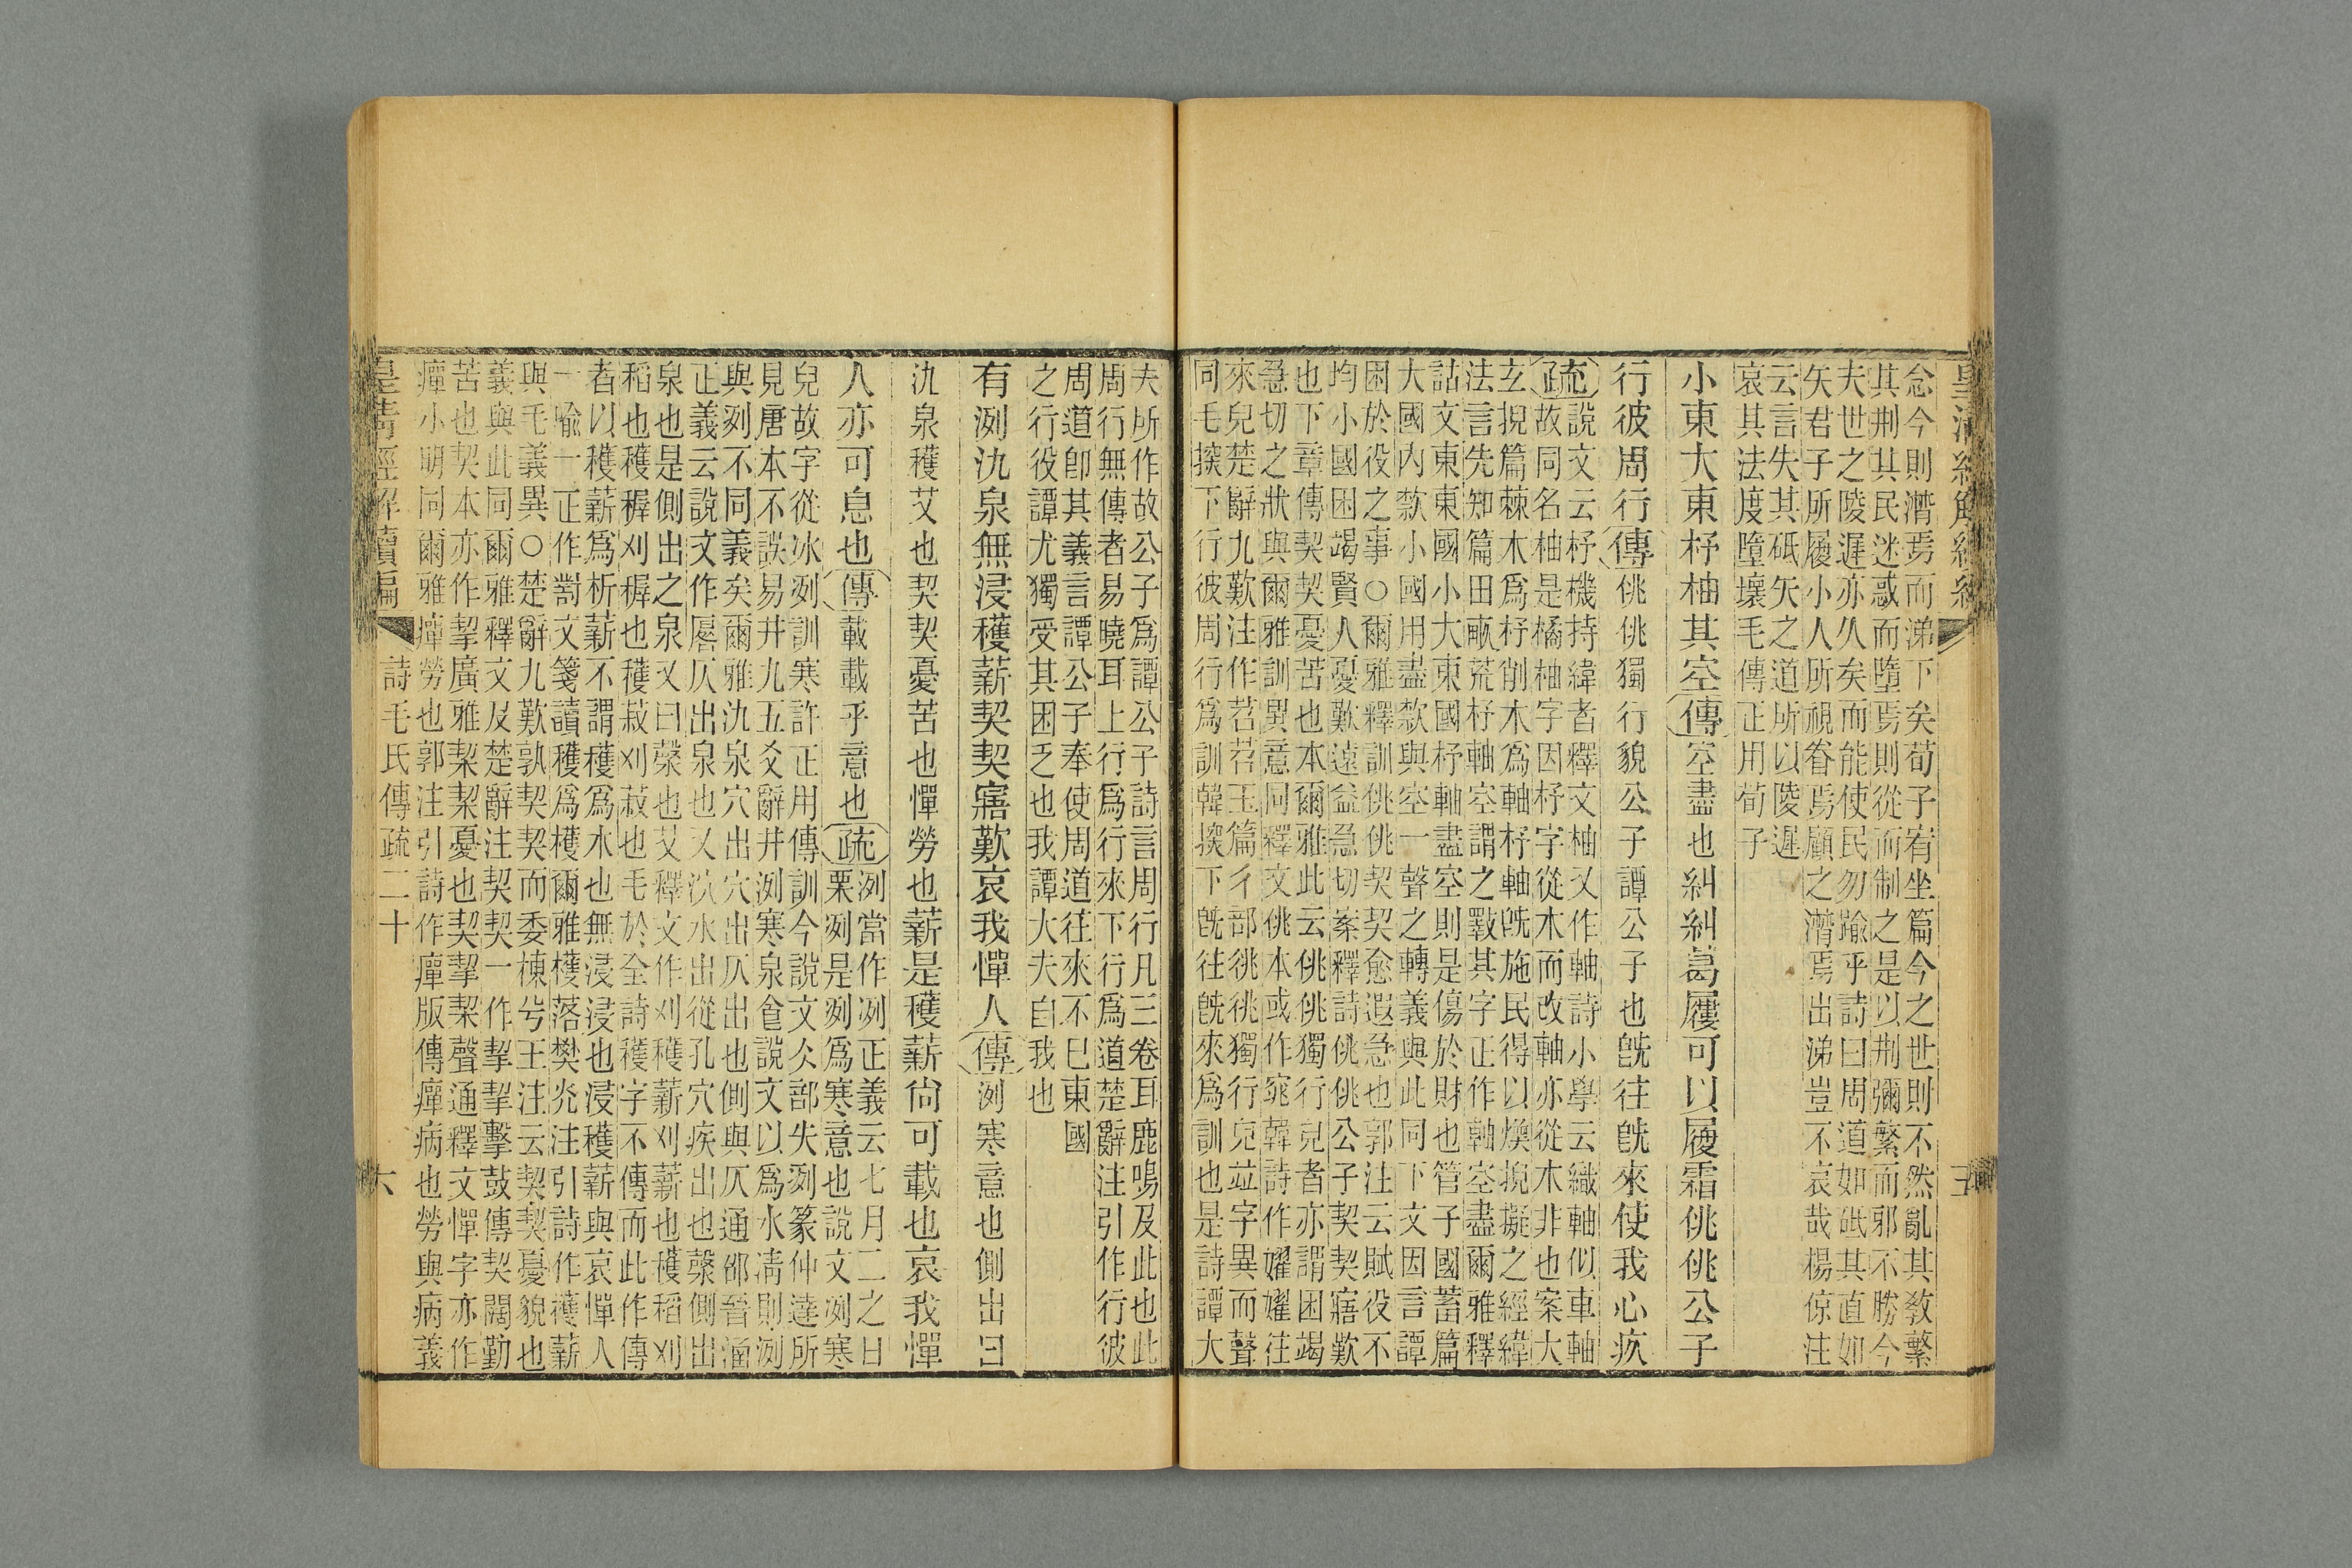 念今則濟焉而涕下矣荀子宥坐篇今之世則不然亂其敎繁
其荆其民迷惑而墮焉則從而制之是以荆彌繁而邪不勝今
夫世之陵遲亦久矣而能使民勿踰乎詩曰周道如砥其直如
矢君子所履小人所視眷焉顧之濟焉出涕豈不哀哉楊倞注
云言失其砥矢之道所以陵遲
哀其法度墮壞毛傳正用荀子
小東大東杼柚其空傳空盡也糾糾葛屨可以履霜佻佻公子
行彼周行傳佻佻獨行貌公子譚公子也旣往旣來使我心疚
疏說文云杼機持緯者釋文柚又作軸詩小學云織軸似車軸
故同名柚是橘柚字因杼字從木而改軸亦從木非也案大
玄掜篇棘木爲杼削木爲軸杼軸旣施民得以燠掜擬之經緯
法言先知篇田畝荒杼軸空謂之斁其字正作軸空盡爾雅釋
詁文東東國小大東國杼軸盡空則是傷於財也管子國蓄篇
大國內款小國用盡款與空一聲之轉義與此同下文因言譚
困於役之事○爾雅釋訓佻佻契契愈遐急也郭注云賦役不
均小國困竭賢人憂歎遠益急切案釋詩佻佻公子契契寤歎
也下章傳契契憂苦也本爾雅此云佻佻獨行皃者亦謂困竭
急切之狀與爾雅訓異意同釋文佻本或作窕韓詩作嬥嬥往
來皃楚辭九歎注作苕苕玉篇彳部㣠㣠獨行皃竝字異而聲
同毛探下行彼周行爲訓韓探下旣往旣來爲訓也是詩譚大
夫所作故公子爲譚公子詩言周行凡三卷耳鹿鳴及此也此
周行無傳者易曉耳上行爲行來下行爲道楚辭注引作行彼
周道卽其義言譚公子奉使周道往來不已東國
之行役譚尤獨受其困乏也我譚大夫自我也
有洌氿泉無浸穫薪契契寤歎哀我憚人傳洌寒意也側出曰
氿泉穫艾也契契憂苦也憚勞也薪是穫薪尙可載也哀我憚
人亦可息也傳載載乎意也疏洌當作冽正義云七月二之日
栗冽是冽爲寒意也說文冽寒
皃故字從冰冽訓寒許正用傳訓今說文仌部失冽篆仲達所
見唐本不誤易井九五爻辭井洌寒泉食說文以爲水淸則洌
與冽不同義矣爾雅氿泉穴出穴出仄出也側與仄通郤晉涵
正義云說文作厬仄出泉也又汍水出從孔穴疾出也漀側出
泉也是側出之泉又曰漀也艾釋文作刈穫薪刈薪也穫稻刈
稻也穫穉刈穉也穫菽刈菽也毛於全詩穫字不傳而此作傳
者以穫薪爲析薪不謂穫爲木也無浸浸也浸穫薪與哀憚人
一喩一正作對文箋讀穫爲檴爾雅檴落樊光注引詩作檴薪
與毛義異○楚辭九歎孰契契而委棟兮王注云契契憂貌也
義與此同爾雅釋文及楚辭注契契一作挈挈擊鼓傳契闊勤
苦也契本亦作挈廣雅栔栔憂也契挈栔聲通釋文憚字亦作
癉小明同爾雅癉勞也郭注引詩作癉版傳癉病也勞與病義
皇淸經解續編 詩毛氏傳疏二十 六